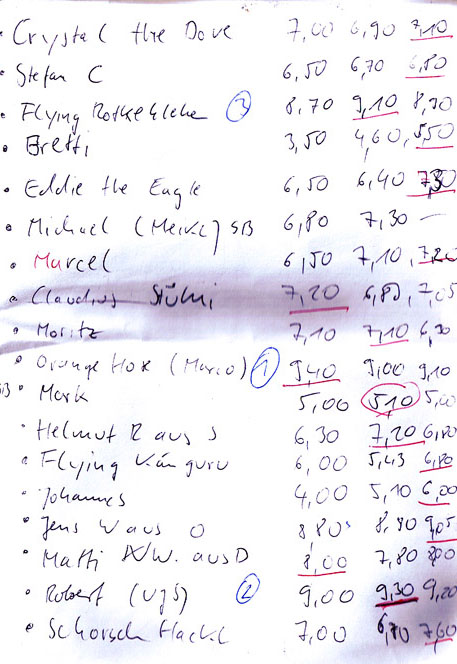 Crystal the Dove 7,00 6,90 7,10
Stefan C 6,50 6,70 6,80
Flying Rotkehlchen 3 8,70 9,10 8,70
Bretti 3,50 4,60, 5,50
Eddie the Eagle 6,50 6,40 7,30
Michael (Meikel) SB 6,80 7,30 —
Marcel 6,50 7,10, 7,20
Claudius Stühi 7,20 6,80, 7,05
Moritz 7,10 7,10 6,90
Orange Hox (Marco) 1 9,40 9,00 9,10
Mark 5,00 5,10 5,00
Helmut R aus S 6,30 7,20 6,80
Flying Känguru 6,00 5,43 6,80
Johannes 4,00 5,10 6,00
Jens W aus O 8,80 8,90 9,05
Matti W. aus D 8,00 7,80 8,00
Robert (VJS) 2 9,00 9,30 9,20
Schorsch Hackl 7,00 6,70 7,60